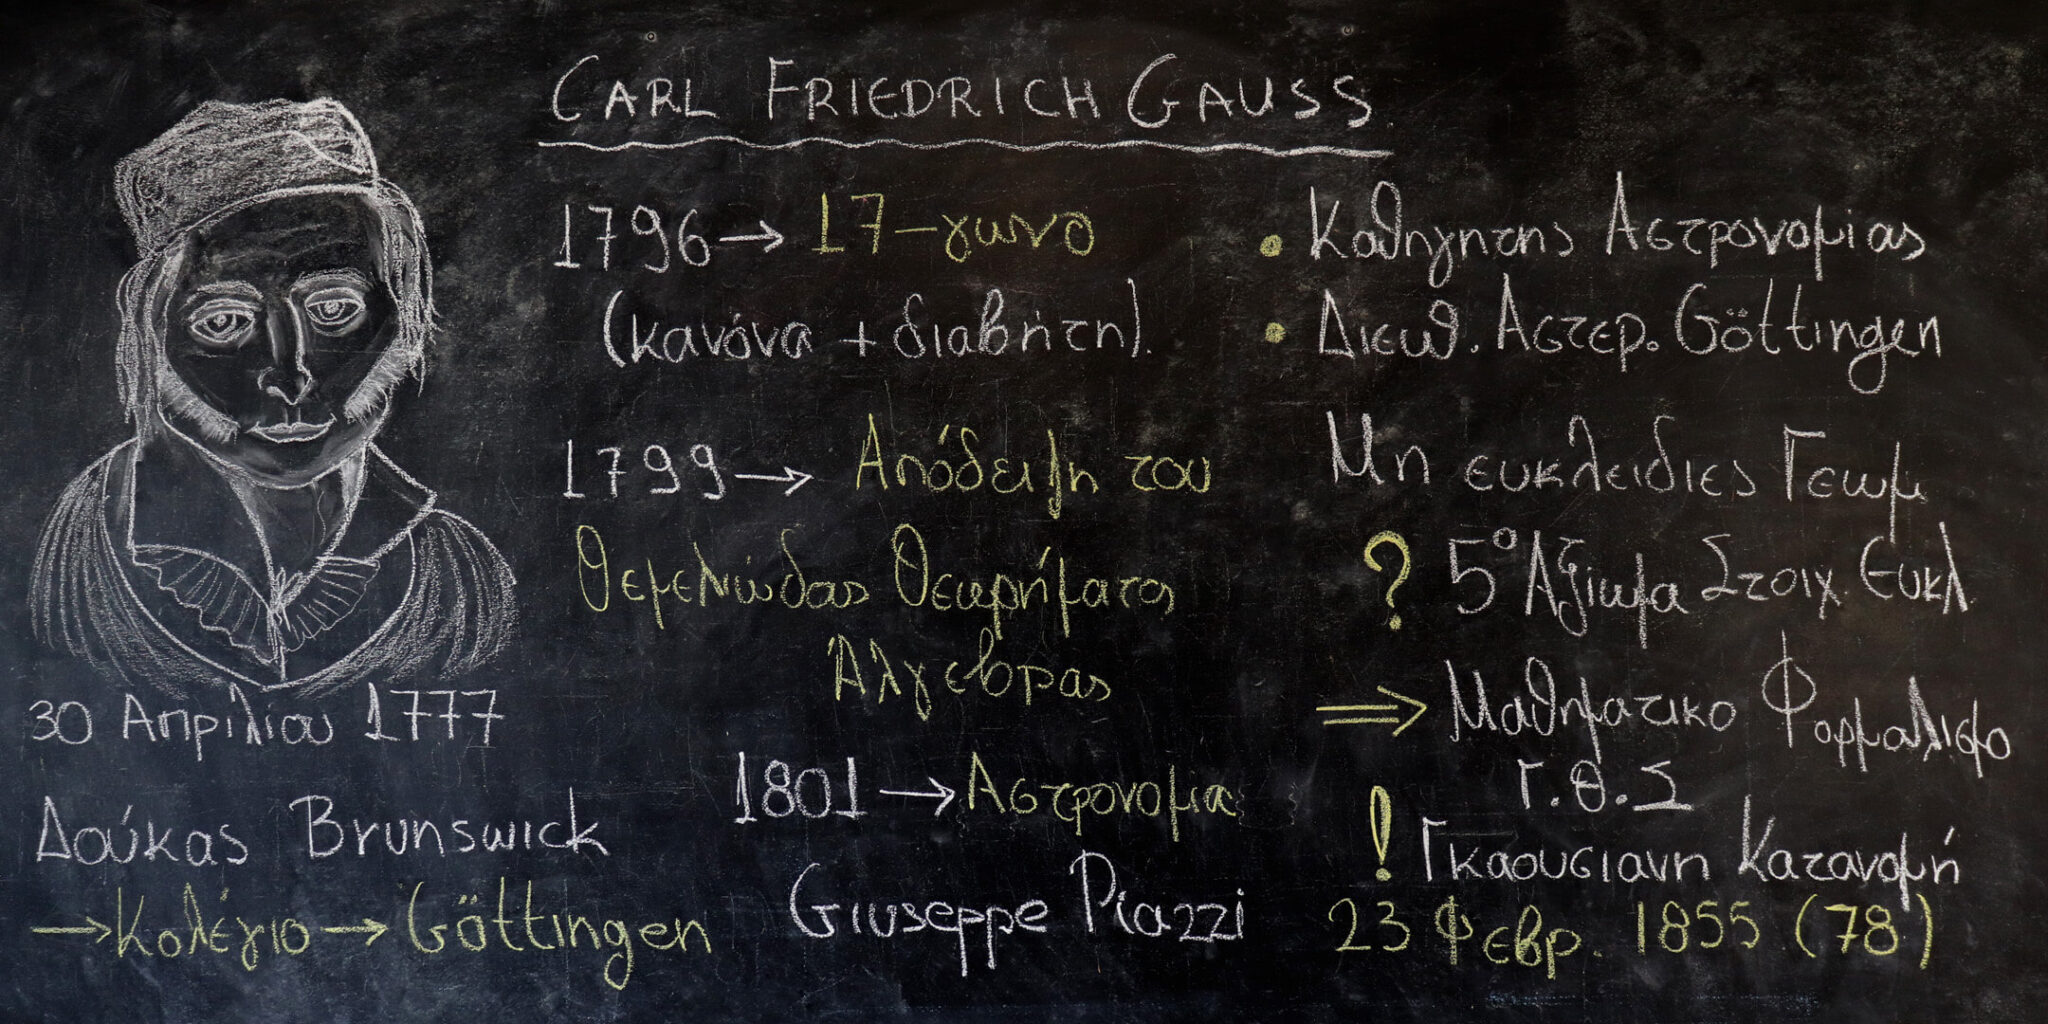 CARL FRIEDRICH GAUSS
30 Απριλίου 1777
Δούκας Brunswick
→ Κολέγιο → Göttingen
1796 → 17-γωνο
(κανόνα + διαβήτη).
1799 → Απόδειξη του
Θεμελιώδας Θεωρήματος
Άλγεβρας
1801 → Αστρονομία
Giuseppe Piazzi
• Καθηγητης Αστρονομίας
• Διευθ. Αστερ. Göttingen
Μη ευκλειδιες Γεωμ
? 5º Αξίωμα Στοιχ. Ευκλ.
⇒ Μαθηματικο Φορμαλισμο
Γ.Θ.Σ
! Γκαουσιανη Κατανομή
23 Φεβρ. 1855 (78)